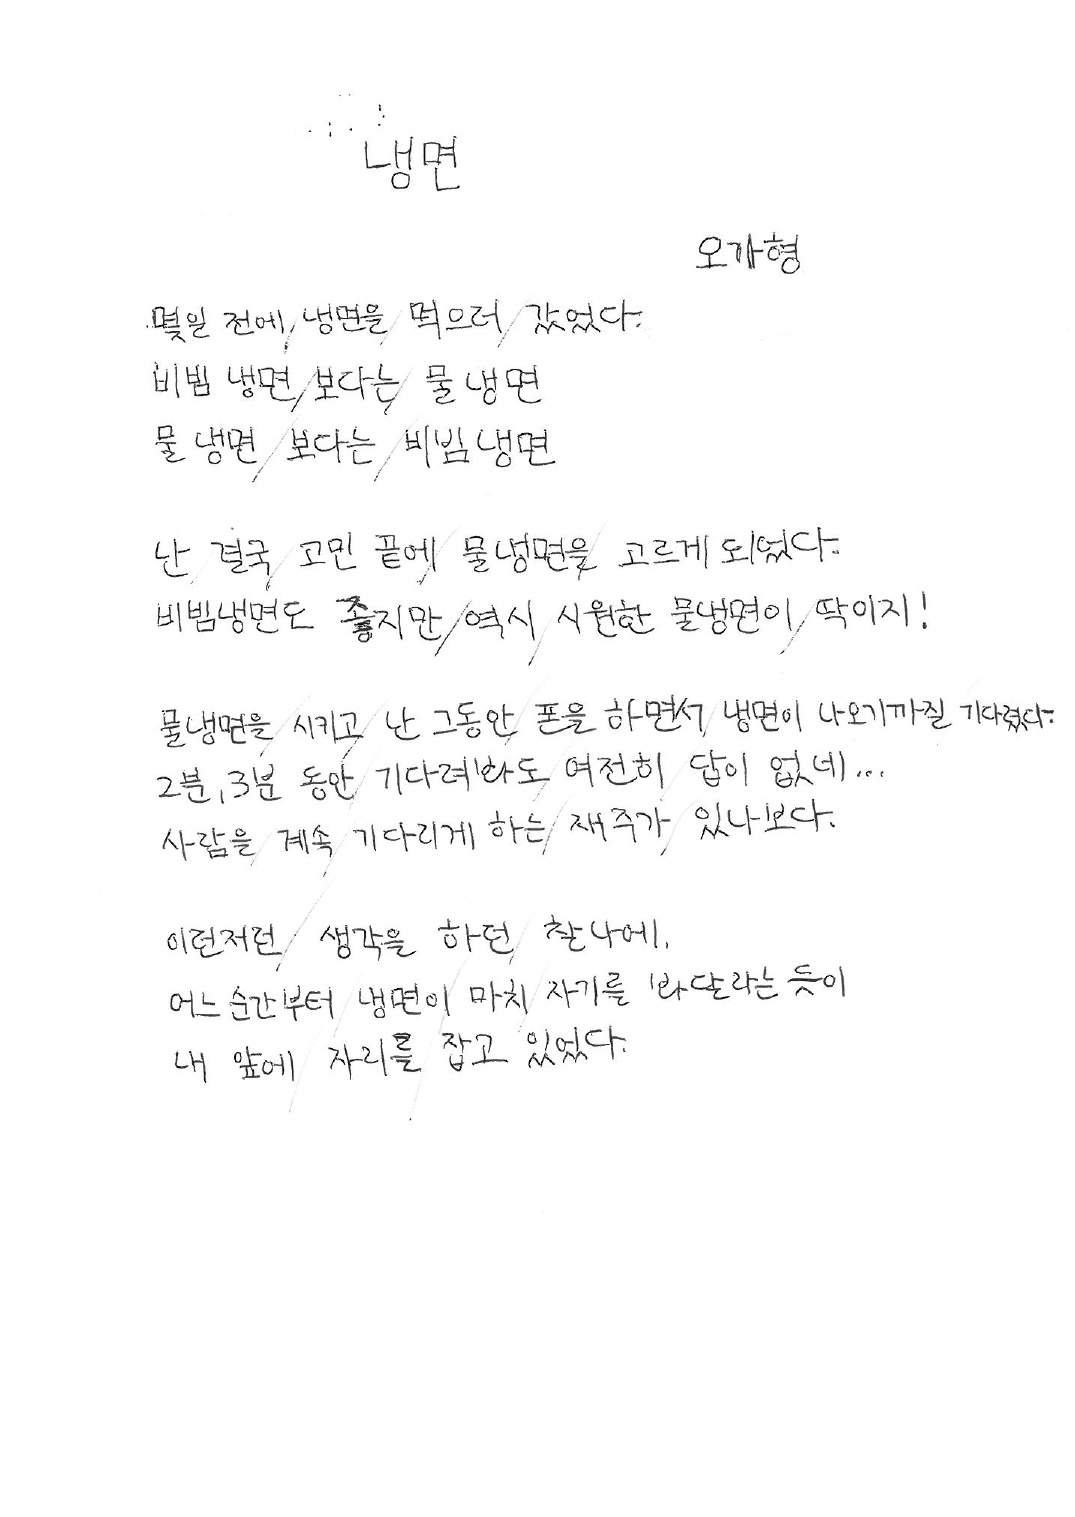 냉면
오가형
몇일 전에 냉면을 먹으러 갔었다.
비빔 냉면 보다는 물 냉면
물 냉면 보다는 비빔냉면
난 결국 고민 끝에 물냉면을 고르게 되었다.
비빔냉면도 좋지만 역시 시원한 물냉면이 딱이지!
물냉면을 시키고 난 그동안 폰을 하면서 냉면이 나오기까질 기다렸다.
2분, 3분 동안 기다려봐도 여전히 답이 없네...
사람을 계속 기다리게 하는 재주가 있나보다.
이런저런 생각을 하던 찰나에,
어느 순간부터 냉면이 마치 자기를 봐달라는 듯이
내 앞에 자리를 잡고 있었다.